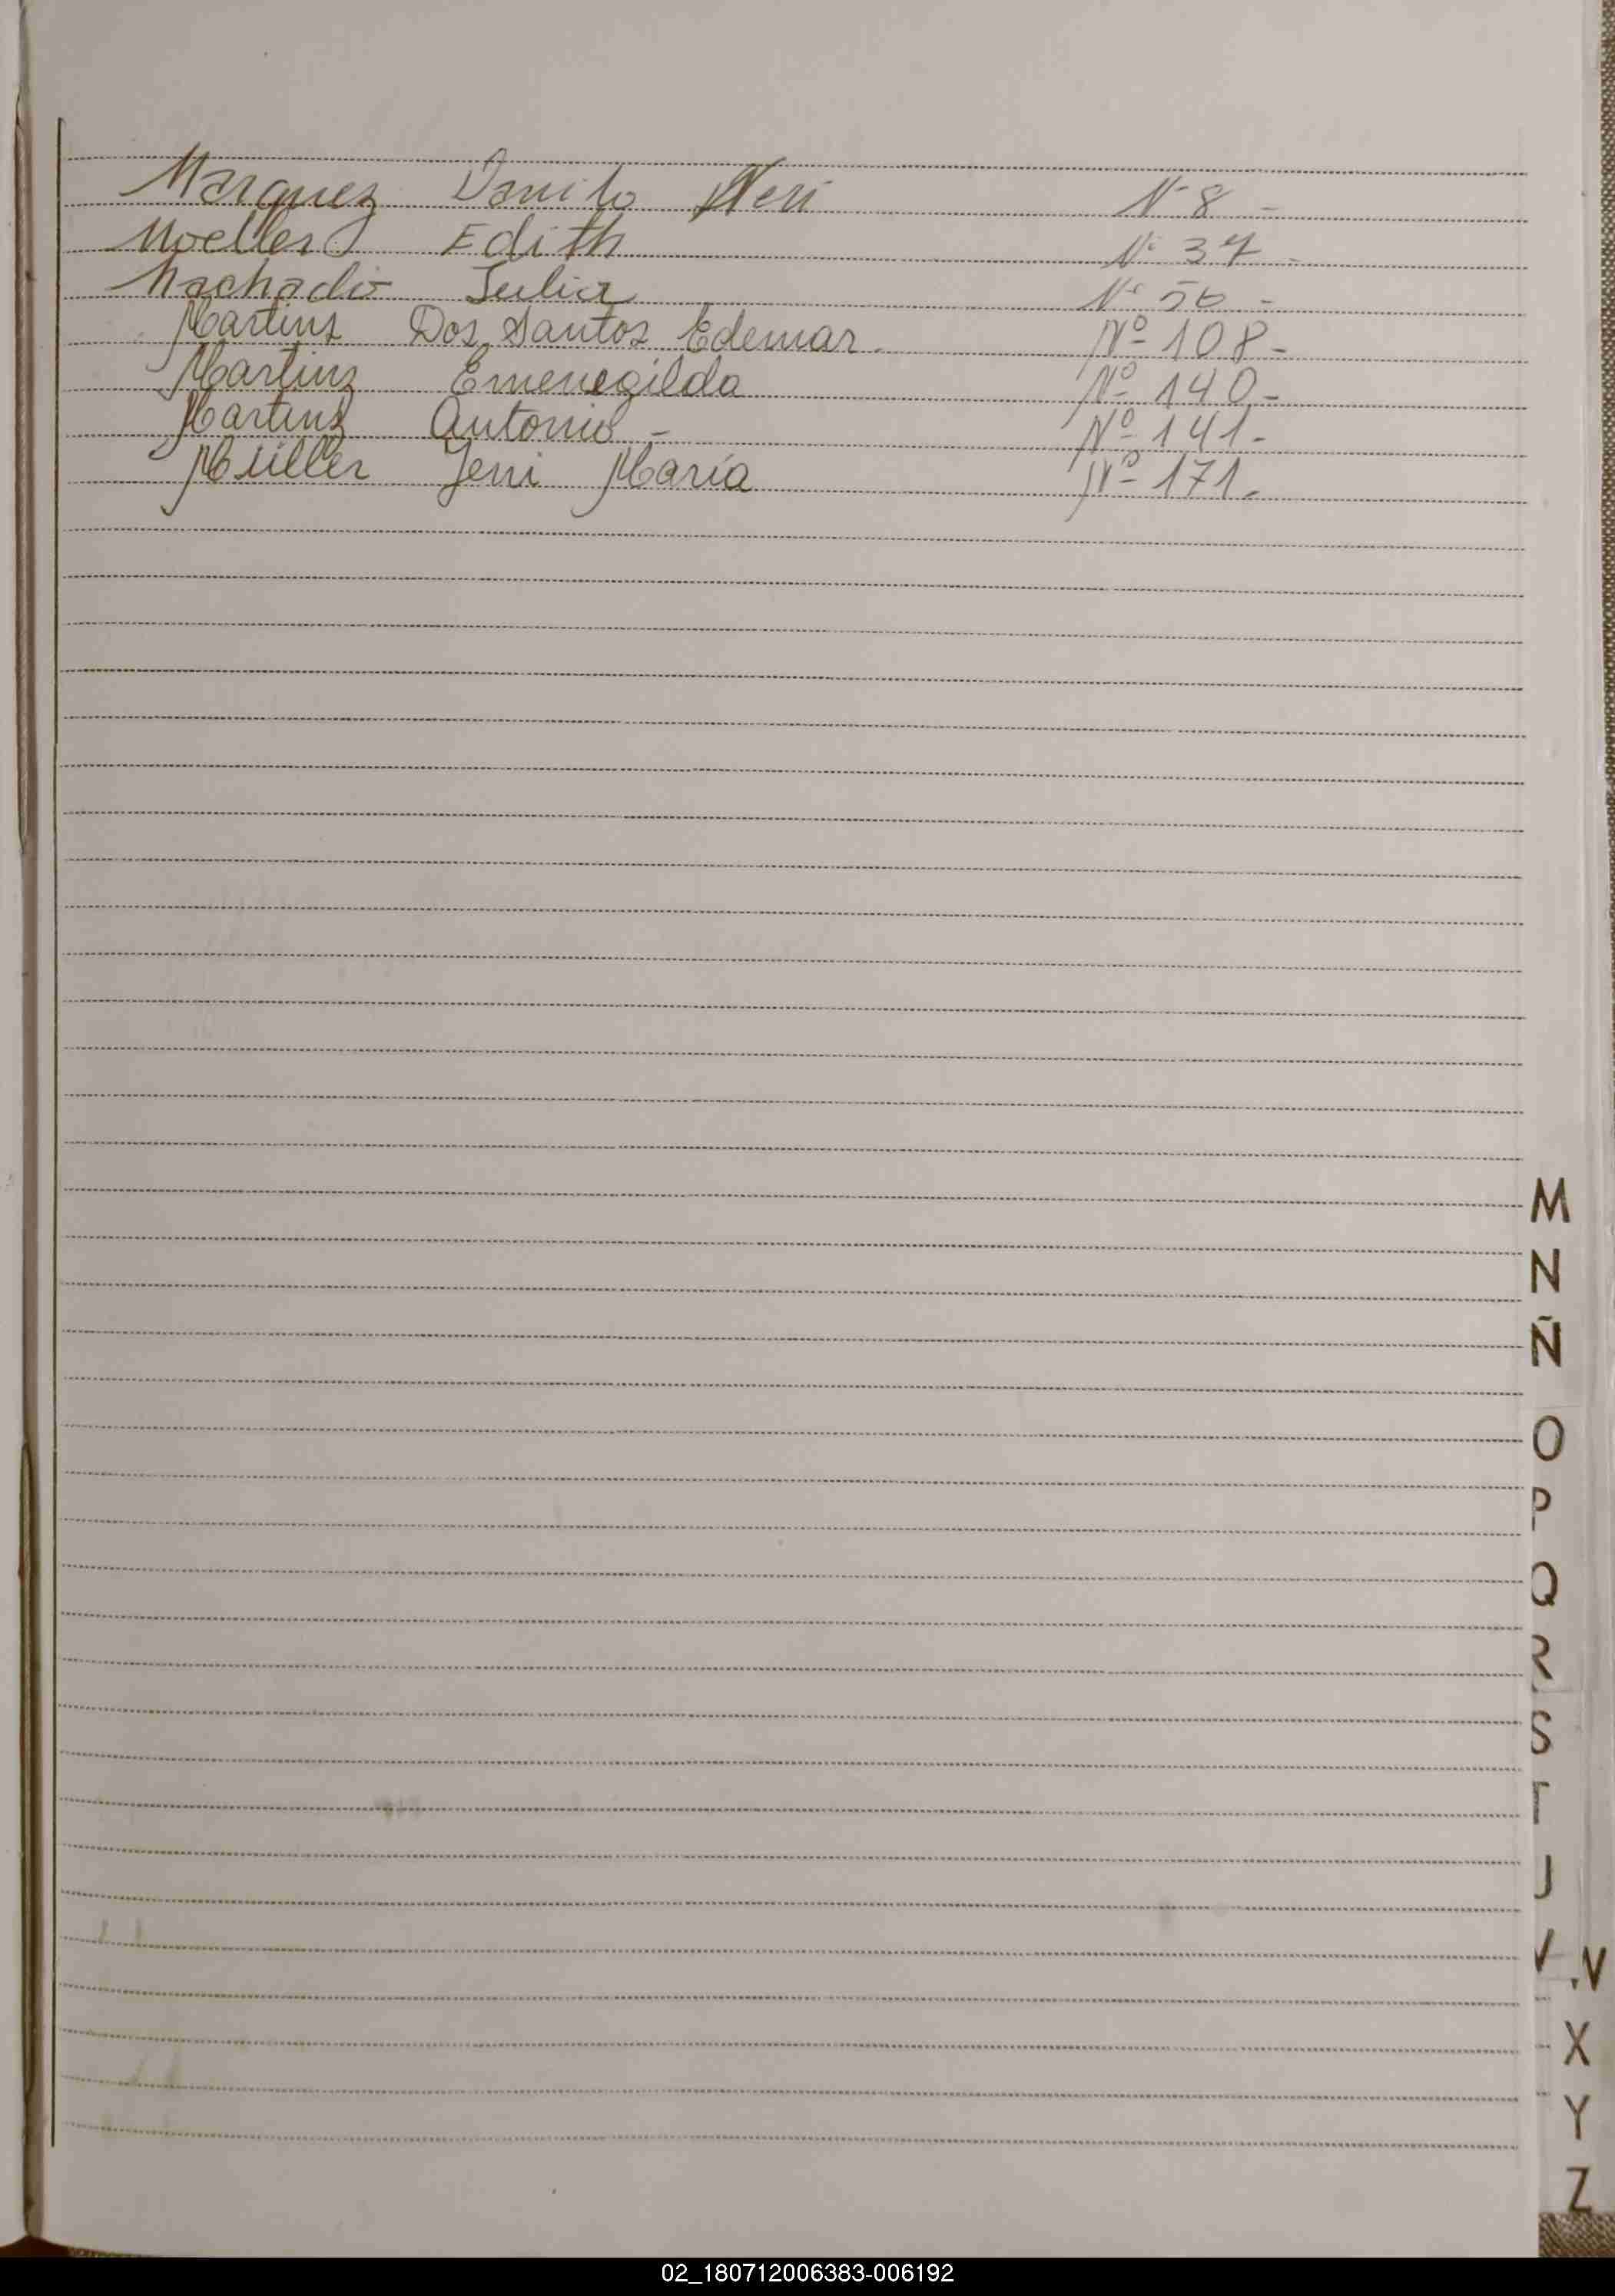 Marquez Danilo Neri Nº 8 -
Moeller Edith Nº 37 -
Machado Julia Nº 56 -
Martins Dos Santos Edemar. Nº 108 -
Martins Emenegilda Nº 140 -
Martins Antonio - Nº 141 -
Müller Jeni María Nº 171 -
M
N
Ñ
O
P
Q
R
S
T
U
V
X
Y
Z
02_180712006383-006192